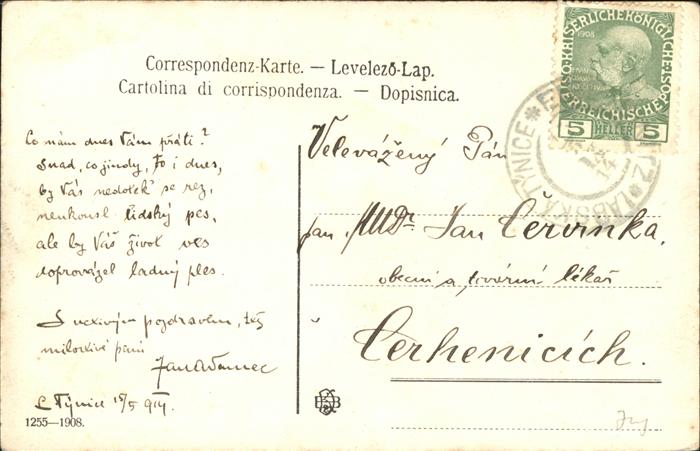 Correspondenz-Karte. — Levelező-Lap.
Cartolina di corrispondenza. — Dopisnica.
Co nám dnes Vám přáti?
Snad, co jindy, to i dnes,
by Vás nedotek' se rez,
neukousl lidský pes,
ale by Váš život ves
doprovázel ladný ples.
S uctivým pozdravem, též
milostivé paní
Jan Adamec
L Týnice 15/5 914.
1255—1908.
Velevážený Pán
pan MUDr. Jan Červinka,
obecní a tovární lékař
v
Cerhenicích.
KAISERLICHE KÖNIGLICHE
ÖSTERREICHISCHE POST
1908
5 HELLER 5
LABSKÁ TÝNICE